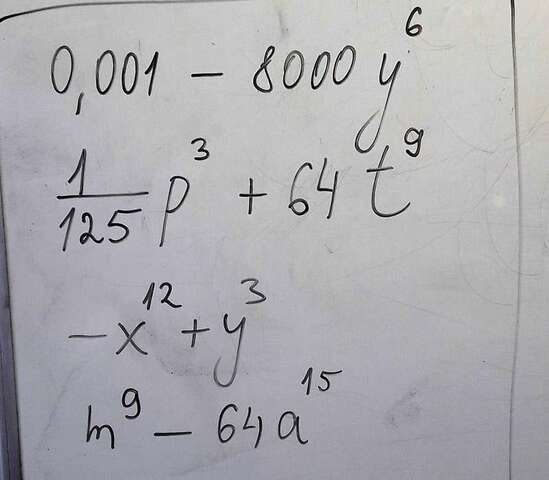 0,001 − 8000 y⁶
1/125 p³ + 64 t⁹
−x¹² + y³
m⁹ − 64a¹⁵